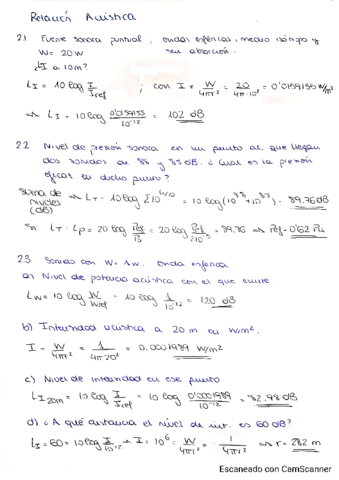 Relación Acústica
2.1 Fuente sonora puntual, ondas esféricas, medio isótropo y
W = 20 W sin absorción.
¿LI a 10m?
LI = 10 log I/Iref ; con I = W/4πr² = 20/4π·10² = 0'0159155 W/m²
⇒ LI = 10 log 0'0159155/10⁻¹² = 102 dB
2.2 Nivel de presión sonora en un punto al que llegan
dos sonidos de 88 y 85 dB. ¿Cuál es la presión
eficaz en dicho punto?
Suma de niveles (dB) LT = 10 log Σ10^(Li/10) = 10 log (10^8'8 + 10^8'5) = 89.76 dB
LT = Lp = 20 log Pef/P0 = 20 log Pef/2·10⁻⁵ = 89.76 ⇒ Pef = 0'62 Pa
2.3 Sonido con W = 1w. Onda esférica
a) Nivel de potencia acústica con el que emite
LW = 10 log W/Wref = 10 log 1/10⁻¹² = 120 dB
b) Intensidad acústica a 20 m en W/m².
I = W/4πr² = 1/4π20² = 0.0001989 W/m²
c) Nivel de intensidad en ese punto
LI 20m = 10 log I/Iref = 10 log 0'0001989/10⁻¹² = 82.98 dB
d) ¿A qué distancia el nivel de int. es 60 dB?
LI = 60 = 10 log I/10⁻¹² → I = 10⁻⁶ = W/4πr² = 1/4πr² ⇒ r = 282 m
Escaneado con CamScanner